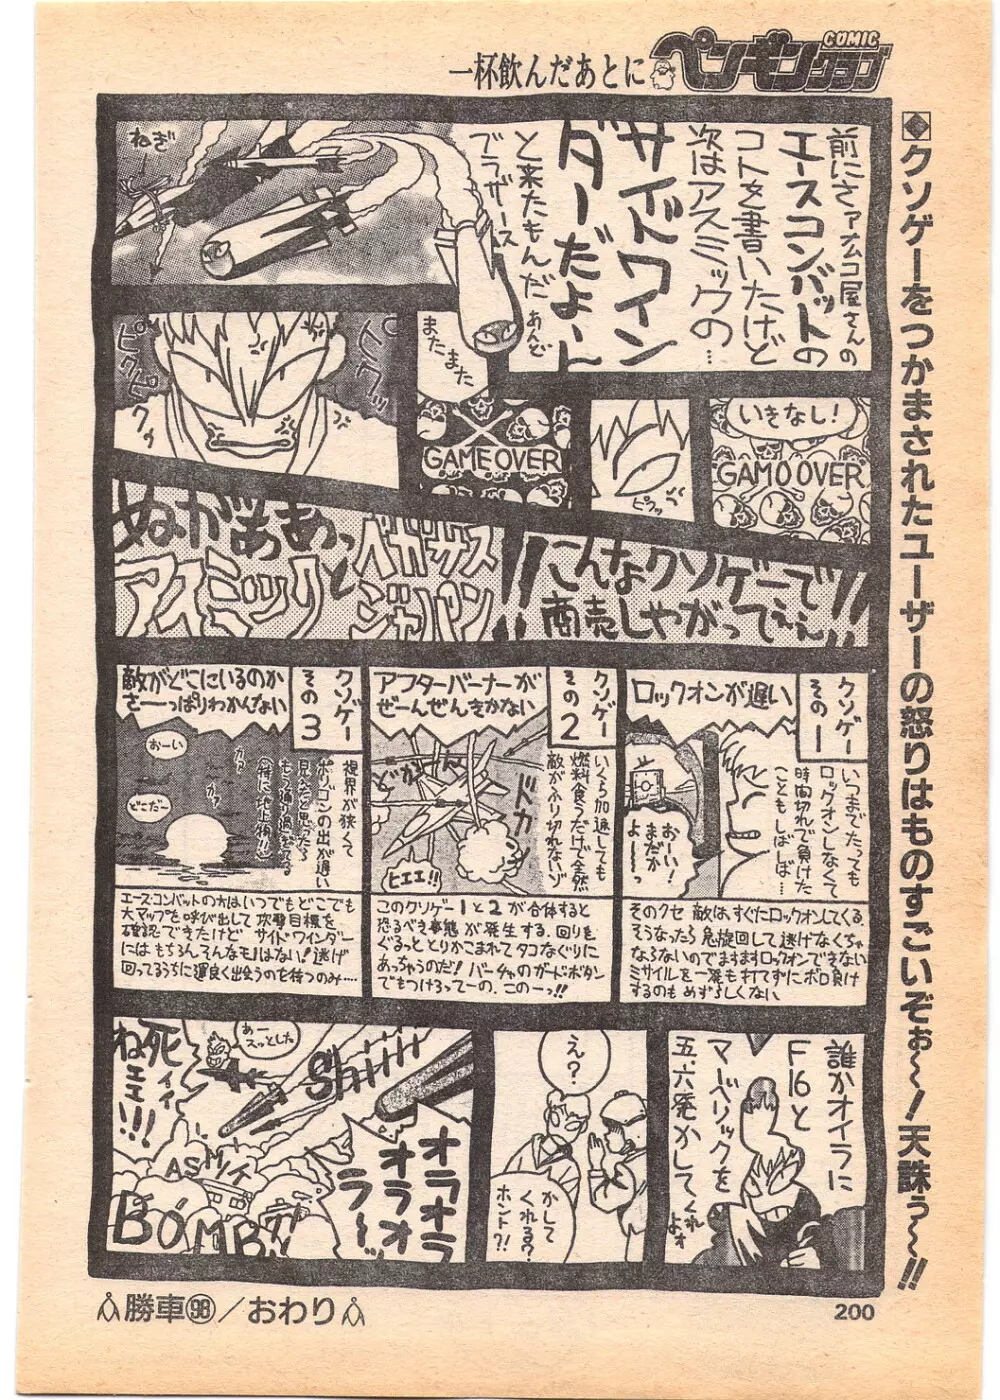 一杯飲んだあとに
COMIC
ペンギンクラブ
◆クソゲーをつかまされたユーザーの怒りはものすごいぞぉ〜!天誅ぅ〜〜!!
前にさァナムコ屋さんの
エースコンバットの
コトを書いたけど
次はアスミックの…
サイドワイン
ダーだよ〜ん
と来たもんだ
あんど
ブラザース
ねぎ
いきなし!
GAMOOVER
ピクッ
GAME OVER
またまた
ピクッ
ピクピクゥ
ぬがぁあぁっ
アスミックと
ペガサス
ジャパン
!!
こんなクソゲーで
商売しやがってぇぇ!!
クソゲー
その1
ロックオンが遅い
いつまでたっても
ロックオンしなくて
時間切れで負けた
こともしばしば…
おーい!
まだか〜
よー
そのクセ敵はすぐにロックオンしてくる
そうなったら急旋回して逃げなくちゃ
ならないのでますますロックオンできない
ミサイルを一発も打てずにボロ負け
するのもめずらしくない
クソゲー
その2
アフターバーナーが
ぜーんぜんきかない
いくら加速しても
燃料食うだけで全然
敵がふり切れないゾ
ドカ
ヒエエ!!
このクソゲー1と2が合体すると
恐るべき事態が発生する 回りを
ぐるっととりかこまれてタコなぐりに
あっちうのだ!バーチャのガードボタン
でもつけろってーの、このーっ!!
クソゲー
その3
敵がどこにいるのか
さーっぱりわかんない
視界が狭くて
ポリゴンの出が遅い
見えたと思ったら
もう通り過ぎてる
(特に地上物!!)
おーい
どこだー
エースコンバットの方はいつでもどこでも
大マップを呼び出して攻撃目標を
確認できたけど サイドワインダー
にはもちろんそんなモノはない!逃げ
回ってるうちに運良く出会うのを待つのみ…
誰かオイラに
F16と
マーベリックを
五、六発かしてくれ
よォ
え?
かして
くれる?
ホント?!
あー
スッとした
Shiiii
死ィィ
ねェェ!!!
オラオラ
オラオラ
ラ〜
BOMB!!
勝車98/おわり
200